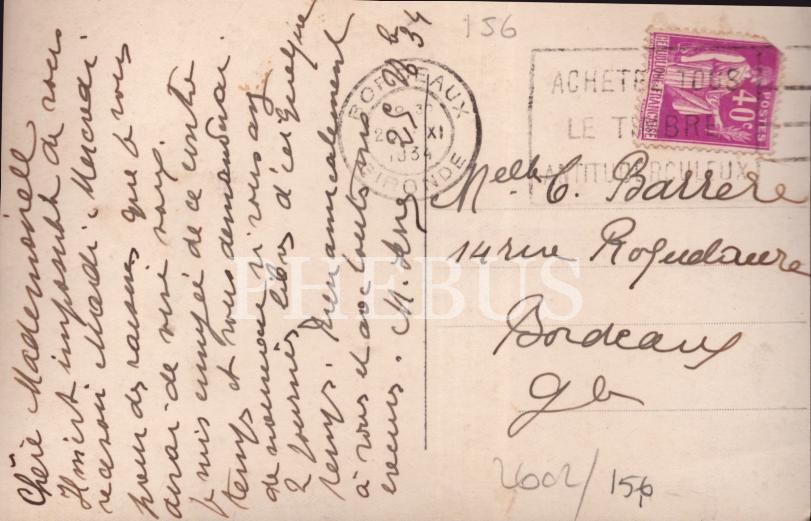 Chère Mademoiselle
Il m'est impossible de vous
recevoir Mardi. Mercredi
pour des raisons que je vous
dirai de vive voix.
Je suis ennuyée de ce contre
temps et vous demanderai
de nouveau si vous avez
2 journées libres d'ici quelque
temps. Bien amicalement
à vous et avec toutes mes
excuses. M.
25 9b 34
156
BORDEAUX
XI
1934
GIRONDE
ACHETEZ TOUS
LE TIMBRE
ANTITUBERCULEUX
POSTES
40c
REPUBLIQUE FRANÇAISE
Melle C. Barrère
14 rue Roquelaure
Bordeaux
PHEBUS
2602/156